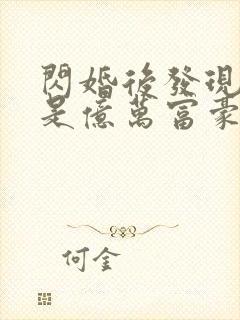 閃婚後發現
是億萬富豪
何金